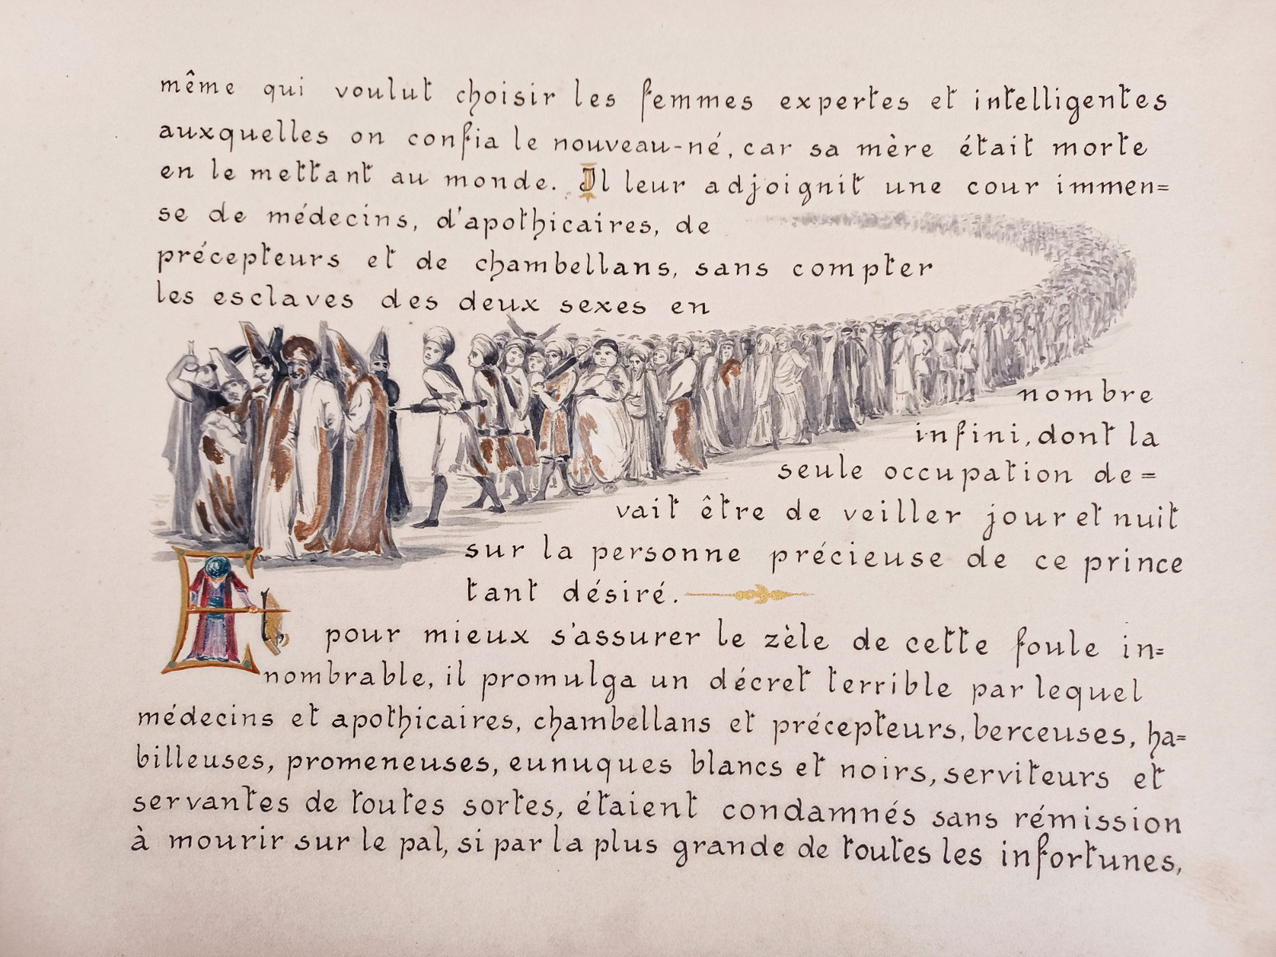 même qui voulut choisir les femmes expertes et intelligentes
auxquelles on confia le nouveau-né, car sa mère était morte
en le mettant au monde. Il leur adjoignit une cour immen=
se de médecins, d'apothicaires, de
précepteurs et de chambellans, sans compter
les esclaves des deux sexes en
nombre
infini, dont la
seule occupation de=
vait être de veiller jour et nuit
sur la personne précieuse de ce prince
tant désiré.
Et pour mieux s'assurer le zèle de cette foule in=
nombrable, il promulga un décret terrible par lequel
médecins et apothicaires, chambellans et précepteurs, berceuses, ha=
billeuses, promeneuses, eunuques blancs et noirs, serviteurs et
servantes de toutes sortes, étaient condamnés sans rémission
à mourir sur le pal, si par la plus grande de toutes les infortunes,